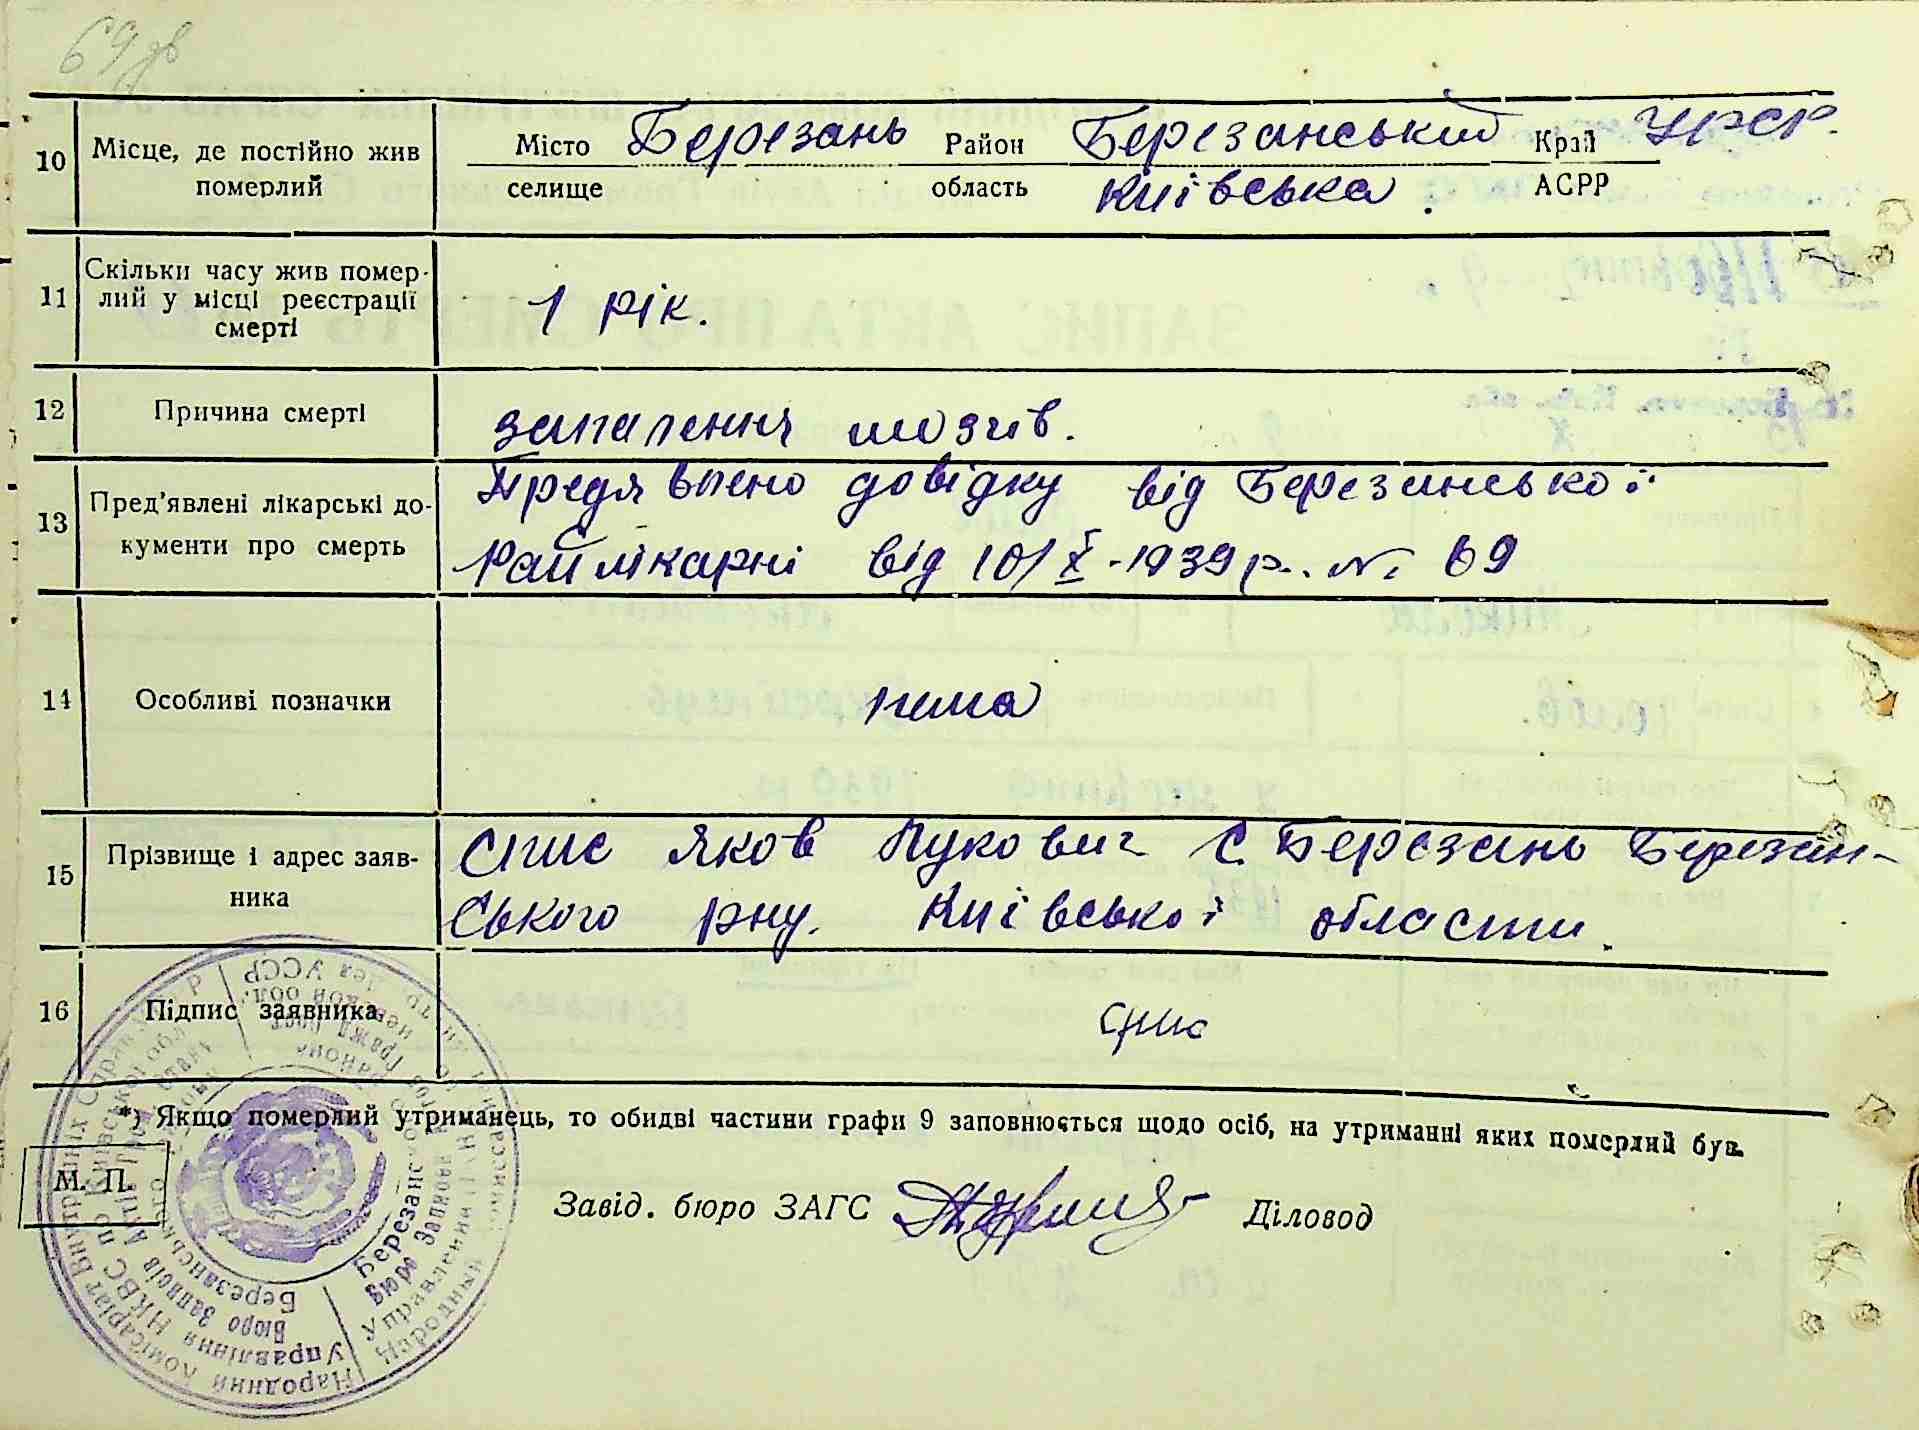 69 зв
10 Місце, де постійно жив померлий
Місто Березань Район Березанський Край УРСР.
селище область Київська. АСРР
11 Скільки часу жив помер-
лий у місці реєстрації
смерті
1 рік.
12 Причина смерті
запалення мозгів.
13 Пред'явлені лікарські до-
кументи про смерть
Предявлено довідку від Березанської
Райлікарні від 10/X-1939 р. № 69
14 Особливі позначки
нема
15 Прізвище і адрес заяв-
ника
Спис Яков Лукович С. Березань Березан-
ського р-ну. Київської области.
16 Підпис заявника
Спис
*) Якщо померлий утриманець, то обидві частини графи 9 заповнюється щодо осіб, на утриманні яких померлий був.
М. П.
Завід. бюро ЗАГС Діловод
Народний Комісаріат Внутрішніх Справ У
Управління НКВС по Київській обл
Бюро Записів Актів Гром. Стану
Березанського